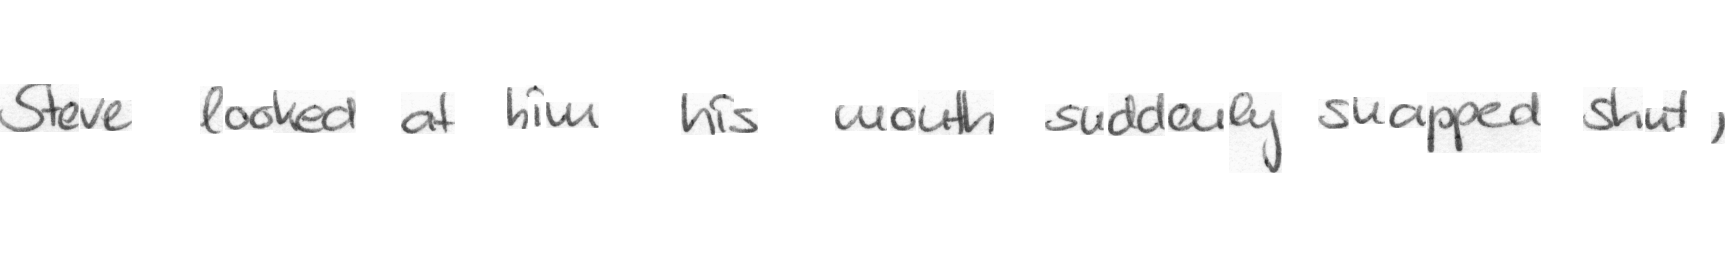 Steve looked at him his mouth suddenly snapped shut,